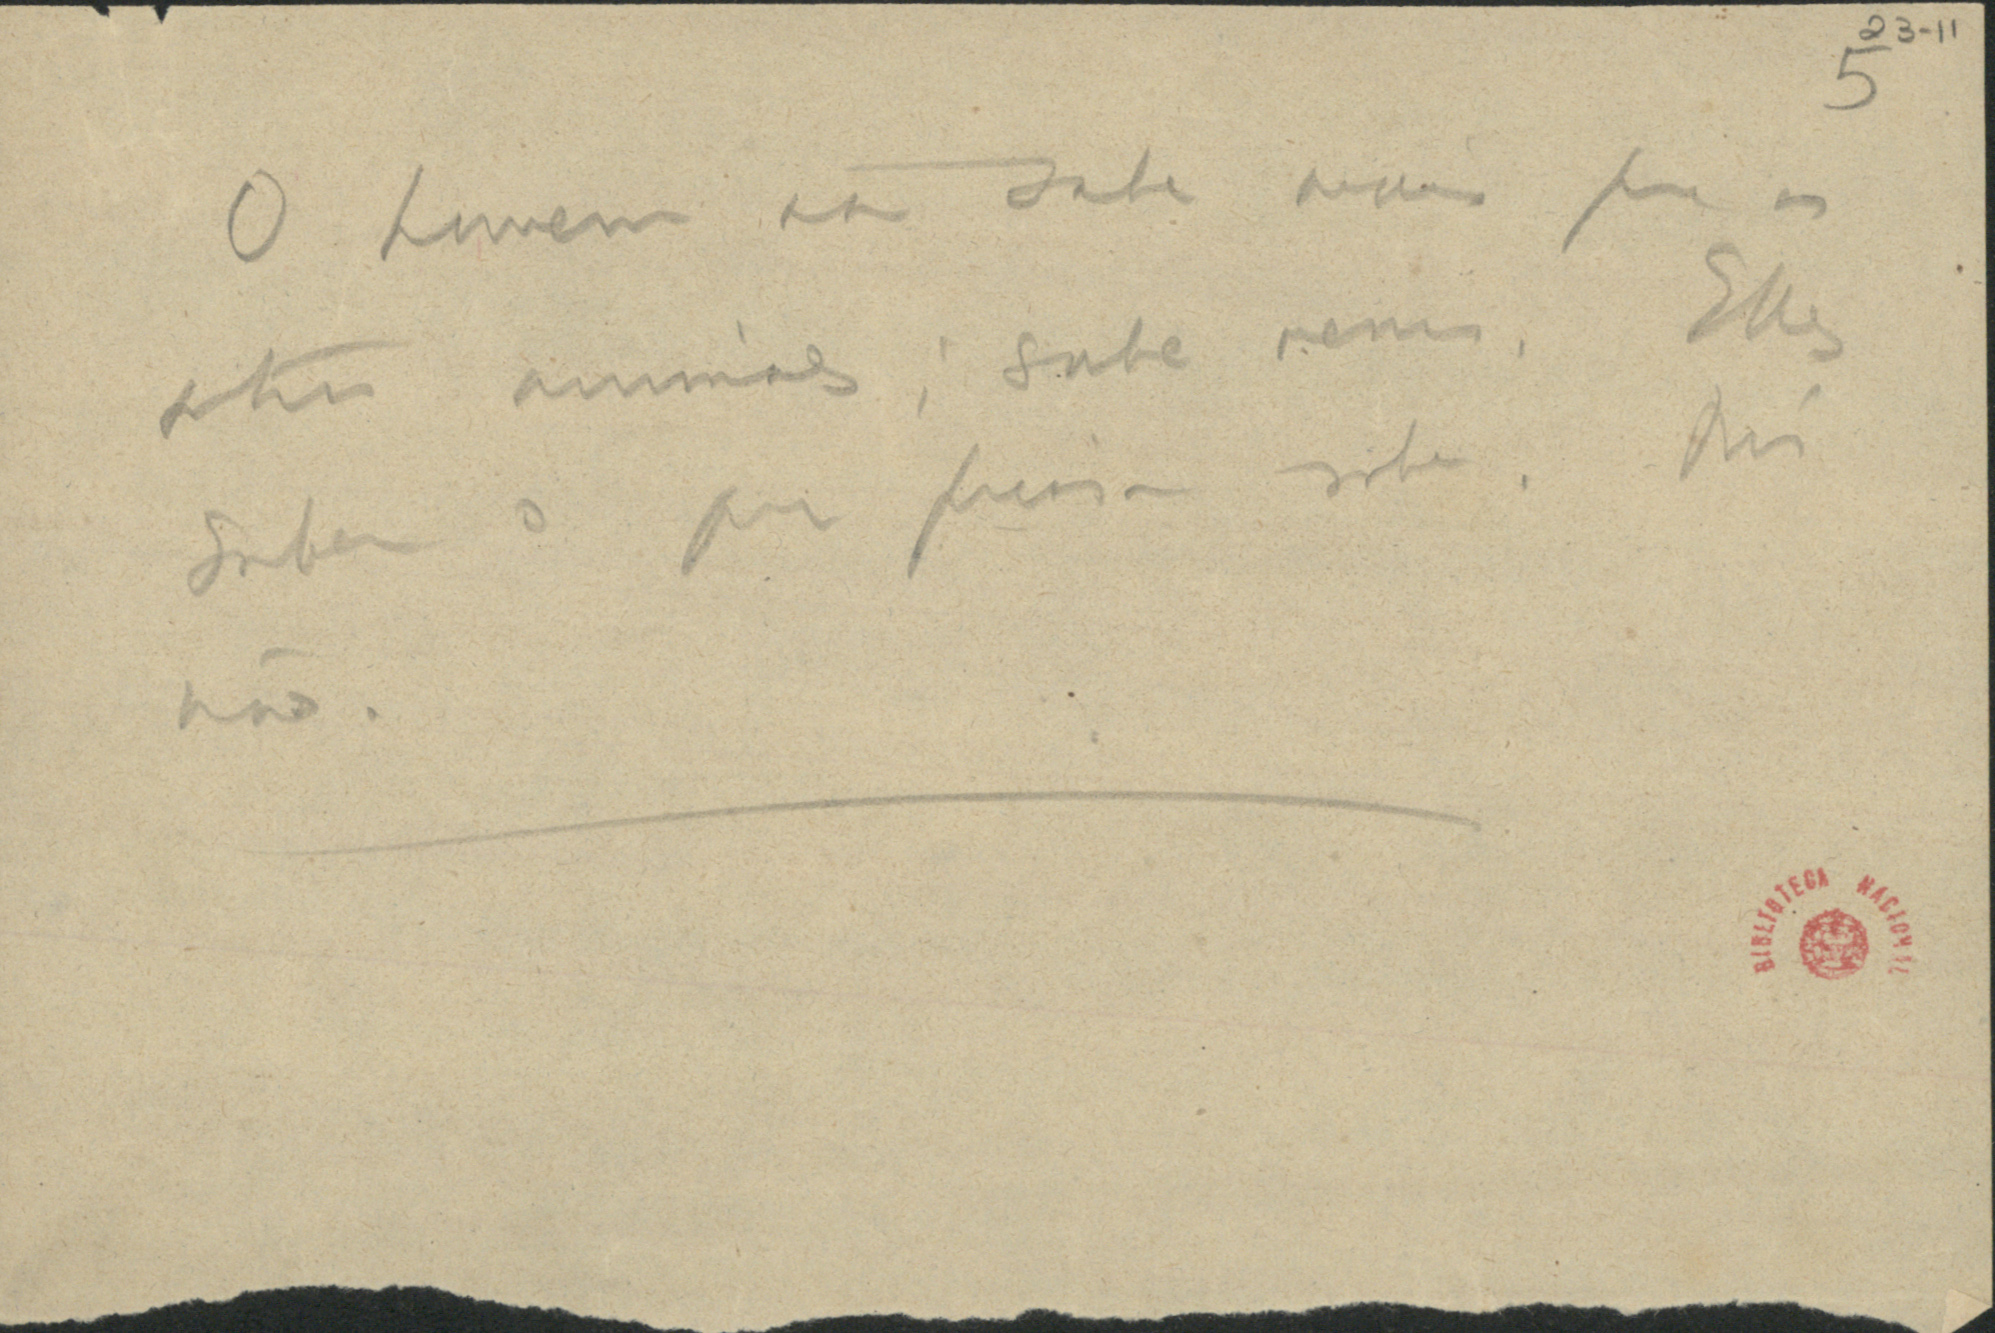 23-11
5
O homem não sabe mais que os
outros animaes; sabe menos. Elles
sabem o que precisam saber. Nós
não.
BIBLIOTECA NACIONAL